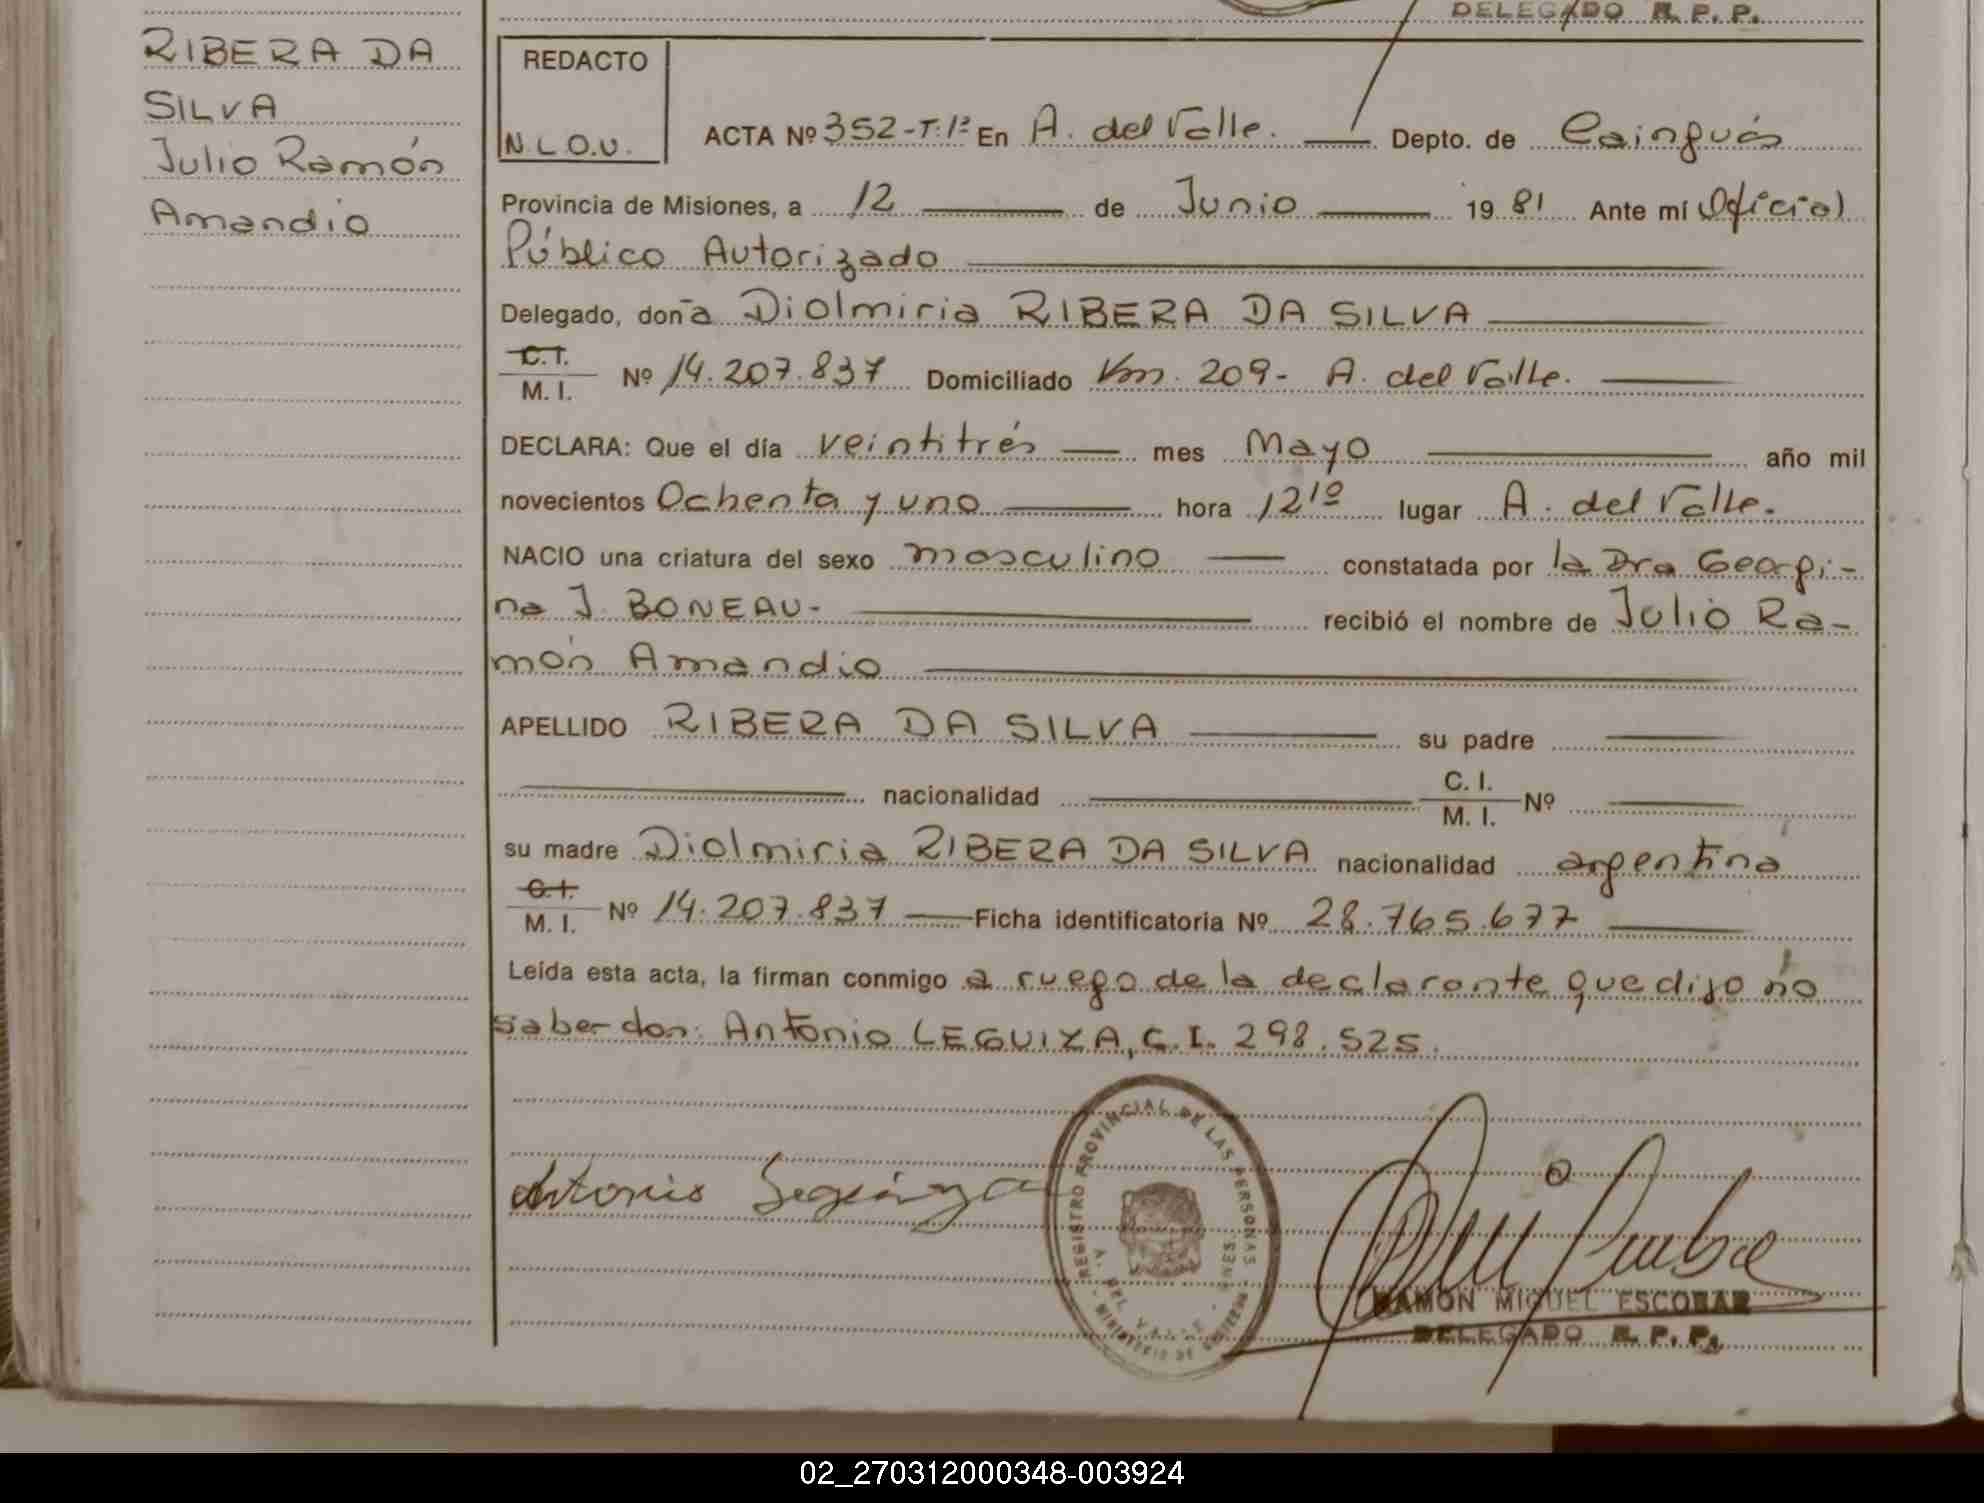 DELEGADO R. P. P.
RIBERA DA
SILVA
Julio Ramón
Amandio
REDACTO
N.L.O.U.
ACTA Nº 352-T:1º En A. del Valle. Depto. de Cainguás
Provincia de Misiones, a 12 de Junio 1981 Ante mí Oficial
Público Autorizado
Delegado, doña Diolmiria RIBERA DA SILVA
C.I.
M. I. Nº 14.207.837 Domiciliado Km. 209- A. del Valle.
DECLARA: Que el día veintitrés mes Mayo año mil
novecientos Ochenta y uno hora 12¹⁰ lugar A. del Valle.
NACIO una criatura del sexo masculino constatada por la Dra Georgi-
na J. BONEAU- recibió el nombre de Julio Ra-
món Amandio
APELLIDO RIBERA DA SILVA su padre
nacionalidad C. I.
M. I. Nº
su madre Diolmiria RIBERA DA SILVA nacionalidad argentina
C.I.
M. I. Nº 14.207.837 Ficha identificatoria Nº 28.765.677
Leída esta acta, la firman conmigo a ruego de la declarante que dijo no
saber don: Antonio LEGUIZA, C.I. 298.525.
Antonio Leguiza
REGISTRO PROVINCIAL DE LAS PERSONAS
A. DEL VALLE - MNES.
MINISTERIO DE GOBIERNO
RAMON MIGUEL ESCOBAR
DELEGADO R. P. P.
02_270312000348-003924